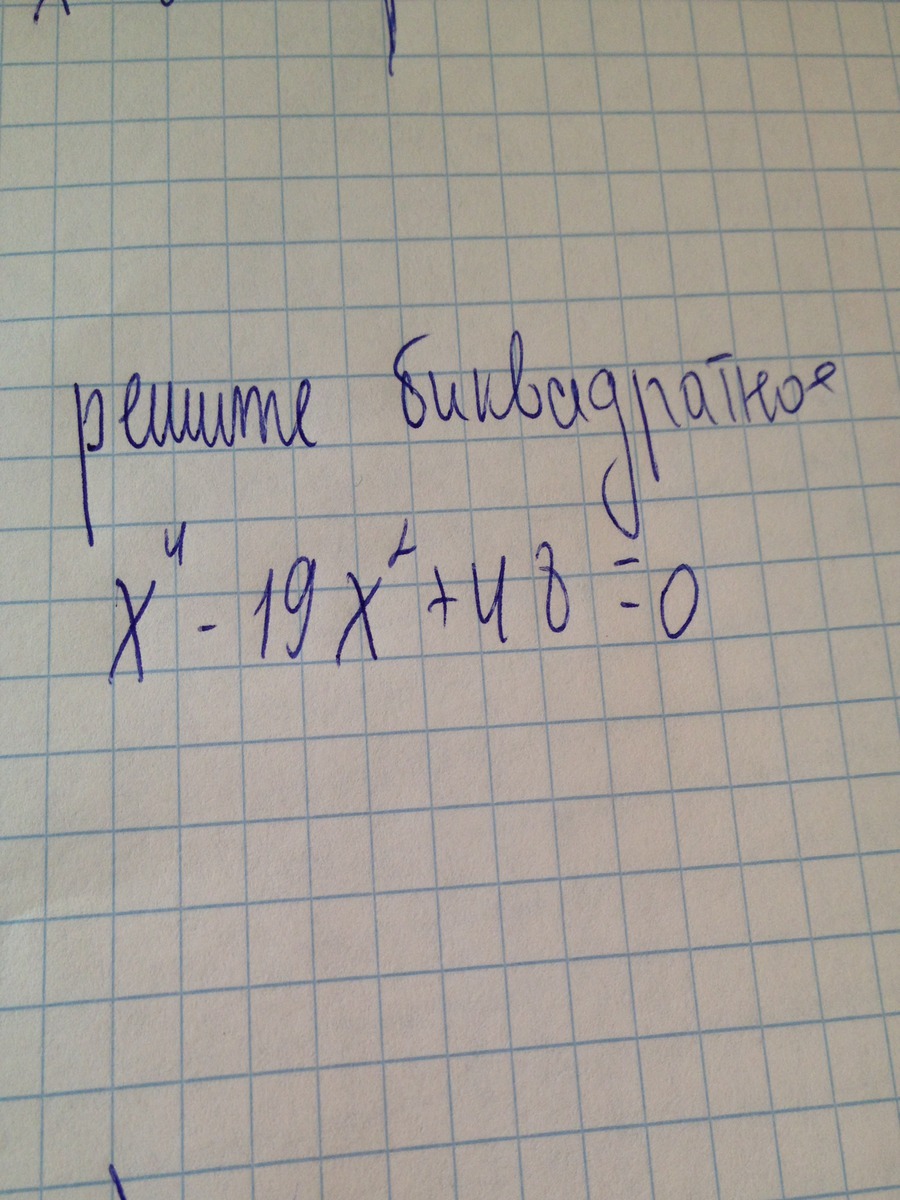 решите биквадратное
x⁴ - 19x² + 48 = 0